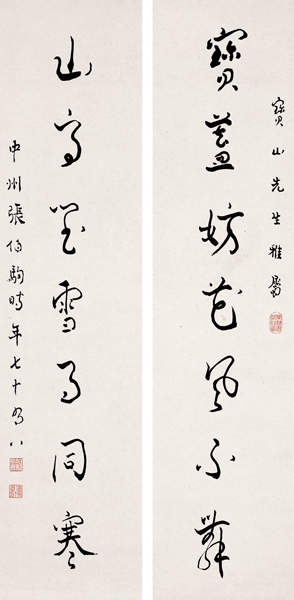 寶山先生雅屬
寶蓋妨花風不舞
山高瑩雪月同寒
中州張伯駒時年七十有八